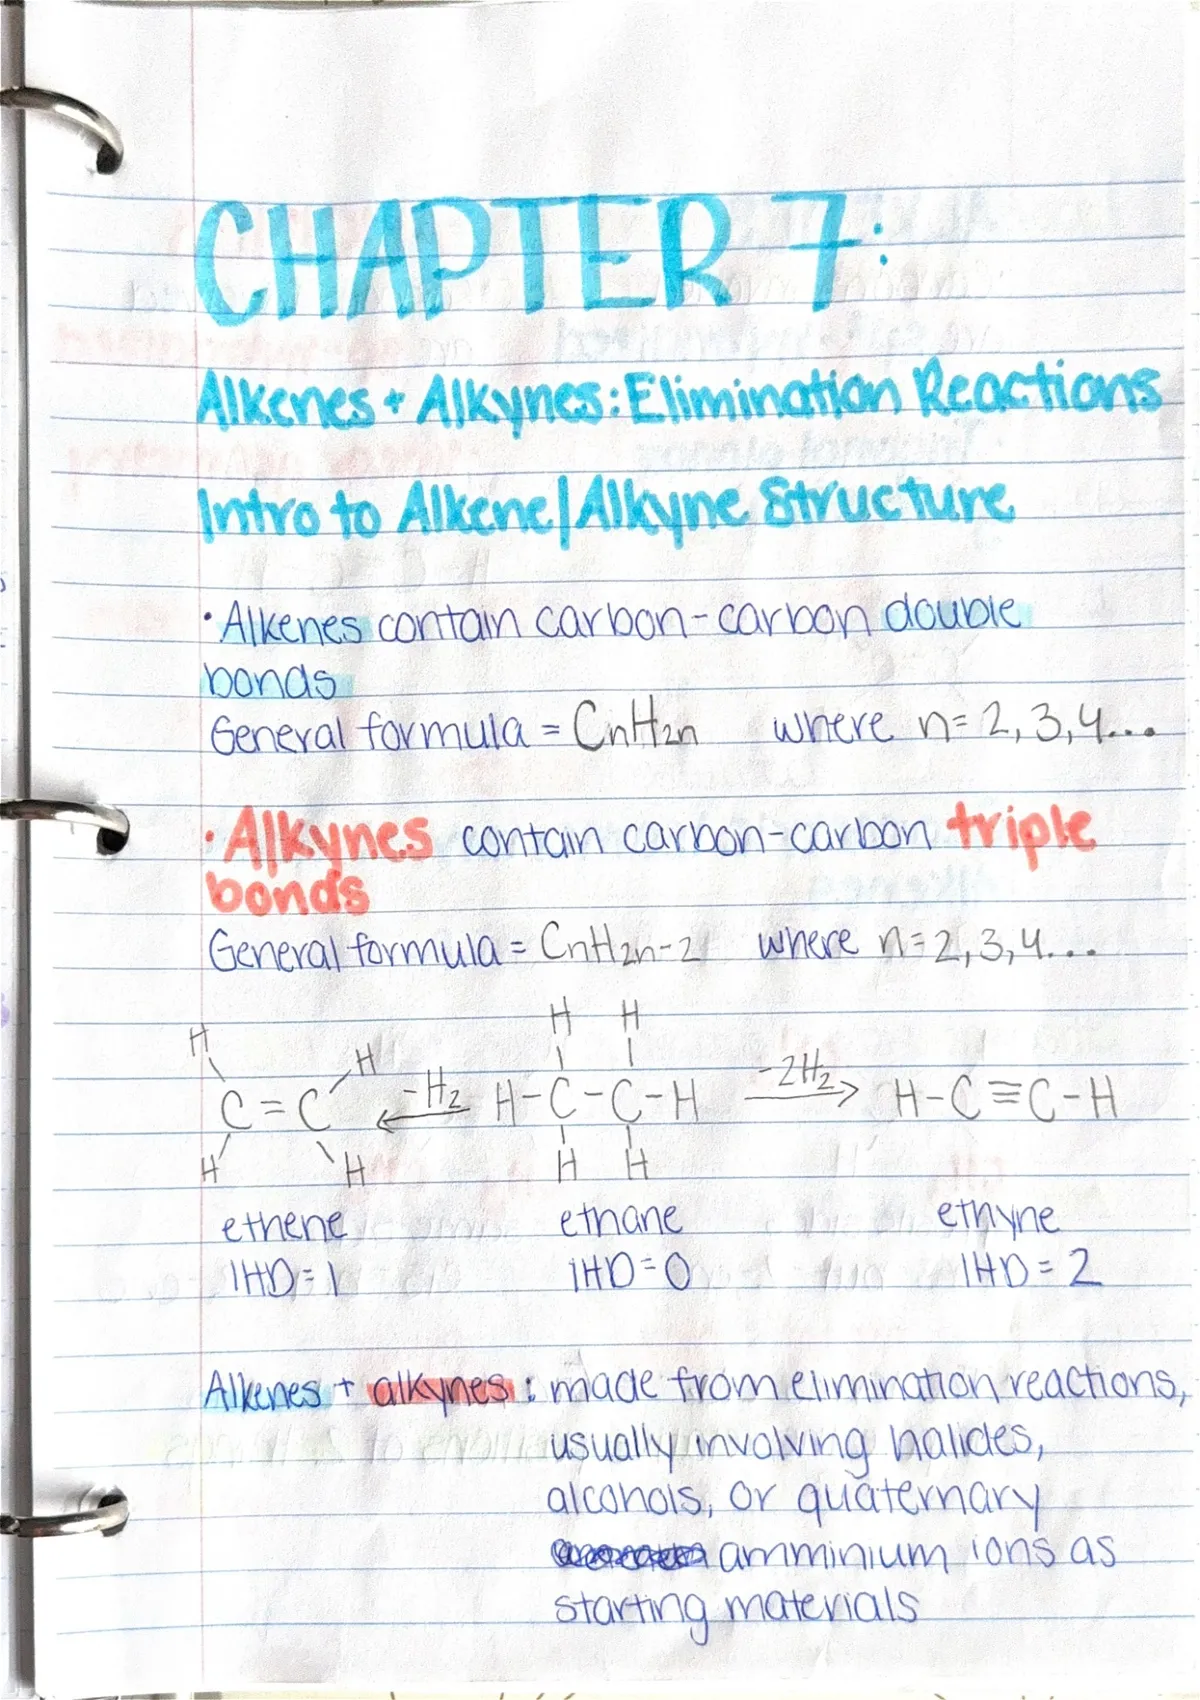 CHAPTER 7:
Alkenes + Alkynes: Elimination Reactions
Intro to Alkene/Alkyne Structure
• Alkenes contain carbon-carbon double
bonds
General formula = CnH2n where n= 2, 3, 4...
• Alkynes contain carbon-carbon triple
bonds
General formula = CnH2n-2 where n=2,3,4...
H H
H H
C=C -H2 H-C-C-H -2H2 H-C≡C-H
H H H H
ethene ethane ethyne
IHD=1 IHD=0 IHD=2
Alkenes + alkynes: made from elimination reactions,
usually involving halides,
alcohols, or quaternary
amminium ions as
starting materials